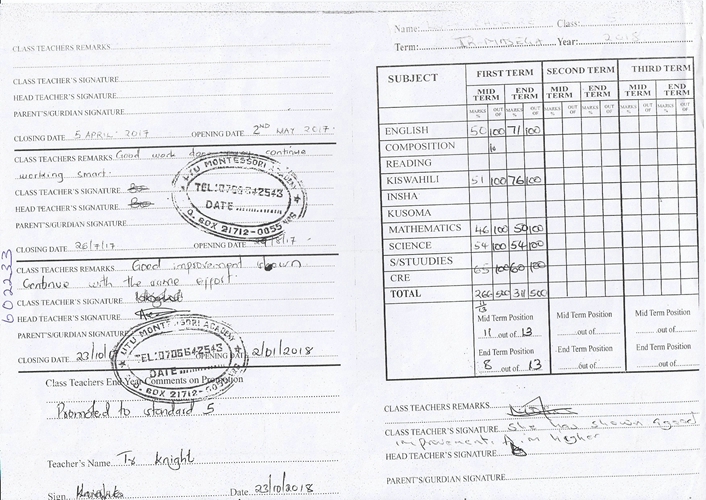 CLASS TEACHERS REMARKS
CLASS TEACHER'S SIGNATURE
HEAD TEACHER'S SIGNATURE
PARENT'S/GURDIAN SIGNATURE
CLOSING DATE 5 APRIL 2017 OPENING DATE 2ND MAY 2017
CLASS TEACHERS REMARKS Good work continue
working smart.
CLASS TEACHER'S SIGNATURE
HEAD TEACHER'S SIGNATURE
PARENT'S/GURDIAN SIGNATURE
UTU MONTESSORI ACADEMY
TEL:0706642543
DATE
BOX 21712-00
CLOSING DATE 26/7/17 OPENING DATE /8/17
602233
CLASS TEACHERS REMARKS Good improvement shown
Continue with the same effort
CLASS TEACHER'S SIGNATURE
HEAD TEACHER'S SIGNATURE
PARENT'S/GURDIAN SIGNATURE
UTU MONTESSORI ACADEMY
TEL:0706642543
DATE
BOX 21712-00
CLOSING DATE 23/10/ OPENING DATE 2/01/2018
Class Teachers End Year Comments on Promotion
Promoted to standard 5
Teacher's Name Tr Knight
Sign Date 23/10/2018
Name: Class:
Term: Year: 2018
SUBJECT FIRST TERM SECOND TERM THIRD TERM
MID TERM END TERM MID TERM END TERM MID TERM END TERM
MARKS % OUT OF MARKS % OUT OF MARKS % OUT OF MARKS % OUT OF MARKS % OUT OF MARKS % OUT OF
ENGLISH 50 100 71 100
COMPOSITION
READING
KISWAHILI 51 100 76 100
INSHA
KUSOMA
MATHEMATICS 46 100 50 100
SCIENCE 54 100 54 100
S/STUUDIES
CRE 65 100 60 100
TOTAL 266 500 311 500
11/13
Mid Term Position Mid Term Position Mid Term Position
11 out of 13 out of out of
End Term Position End Term Position End Term Position
8 out of 13 out of out of
CLASS TEACHERS REMARKS
CLASS TEACHER'S SIGNATURE She has shown good
improvement, Aim higher
HEAD TEACHER'S SIGNATURE
PARENT'S/GURDIAN SIGNATURE